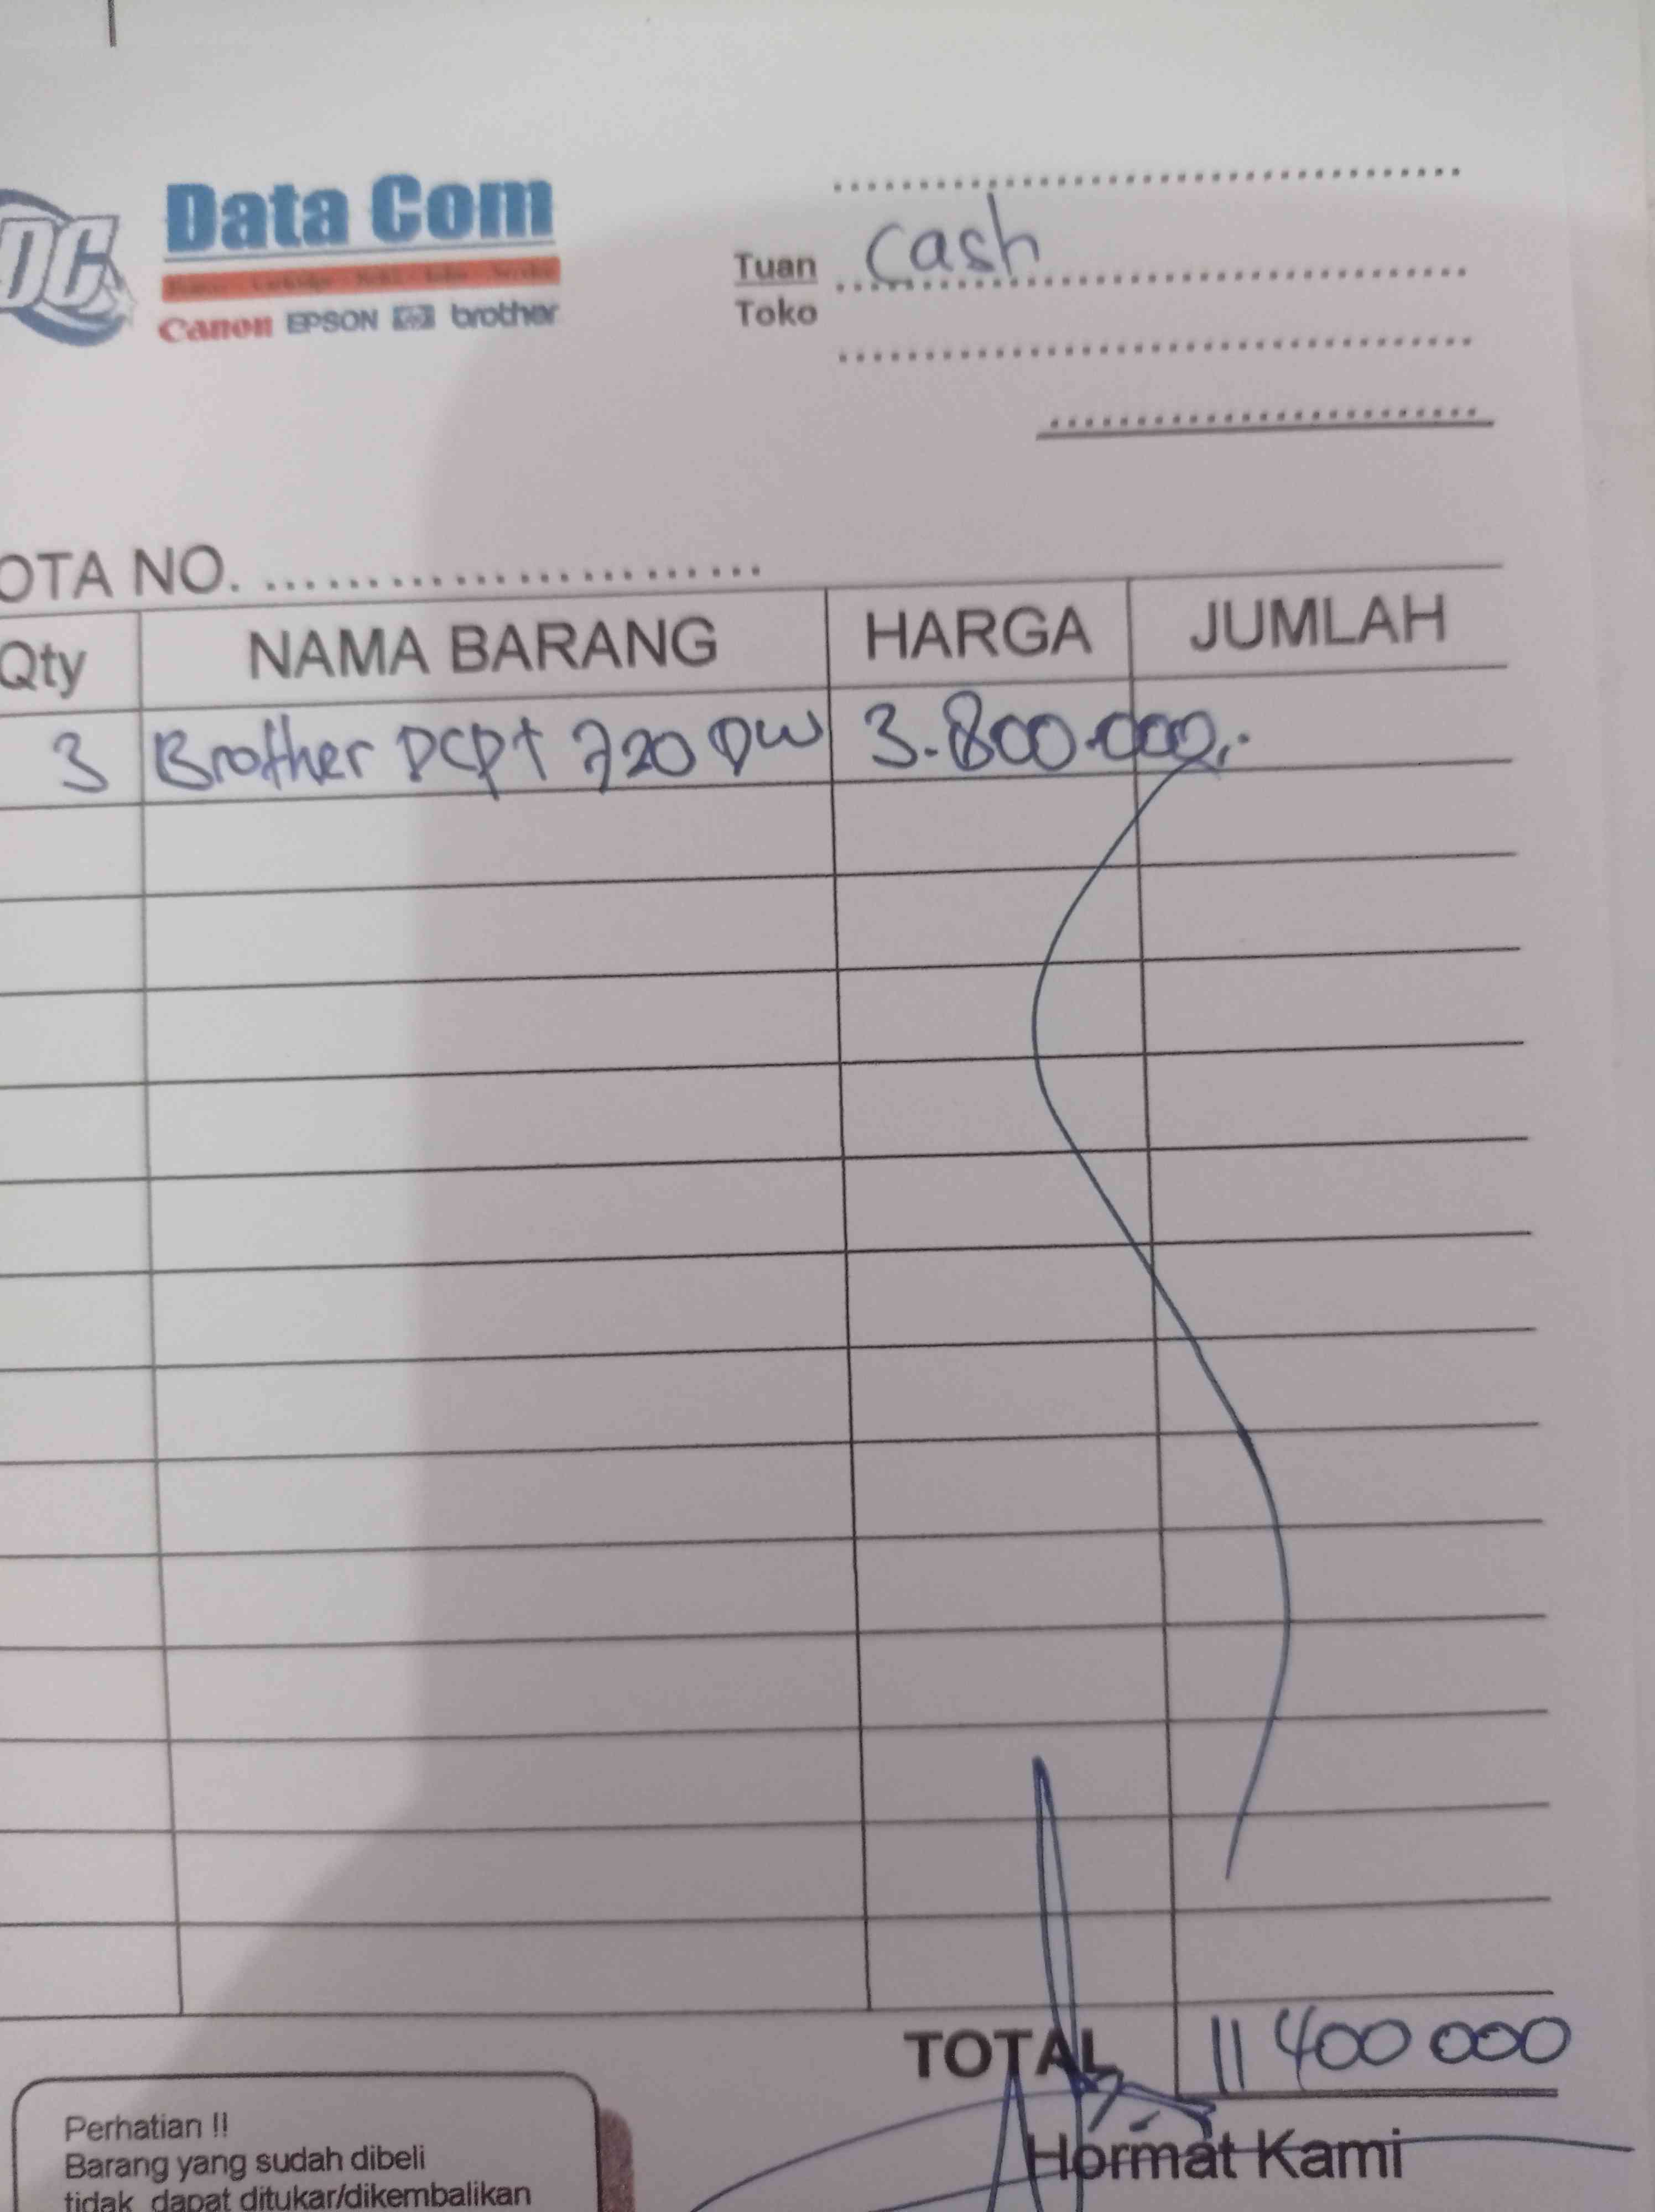 DC Data Com
Canon EPSON hp brother
Tuan cash
Toko
OTA NO.
Qty NAMA BARANG HARGA JUMLAH
3 Brother DCPT 720 DW 3.800.000,-
TOTAL 11 400 000
Hormat Kami
Perhatian !!
Barang yang sudah dibeli
tidak dapat ditukar/dikembalikan